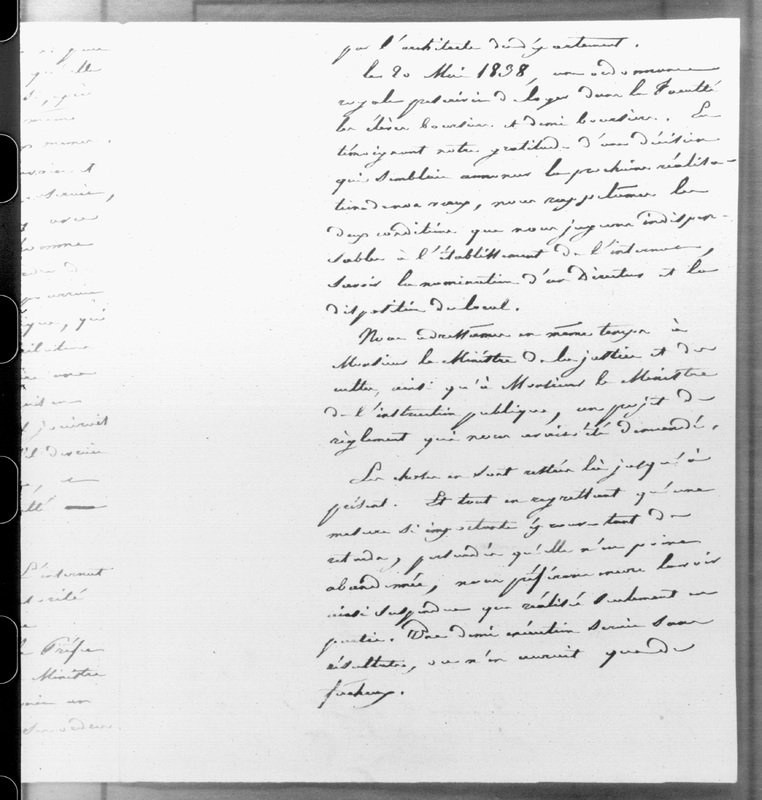 par l'architecte du département.
le 20 Mai 1838, une ordonnance
royale prescrivit de loger dans la Faculté
les élèves boursiers et demi boursiers. En
témoignant notre gratitude d'une décision
qui semblait annoncer la prochaine réalisa-
tion de nos vœux, nous rappelâmes les
deux conditions que nous jugeons indispen-
sables à l'établissement de l'internat,
savoir la nomination d'un Directeur et la
disposition du local.
Nous adressâmes en même temps à
Monsieur le Ministre de la justice et des
cultes, ainsi qu'à Monsieur le Ministre
de l'instruction publique, un projet de
règlement qui nous avait été demandé.
Les choses en sont restées là jusqu'à
présent. Et tout en regrettant qu'une
mesure si importante éprouve tant de
retards, persuadés qu'elle n'est point
abandonnée, nous préférons encore la voir
ainsi suspendue que réalisée seulement en
partie. Une demi exécution serait sans
résultats, ou n'en aurait que de
fâcheux.
qu'elle
même
avec
homme
qui
L'internat
Préfet
Ministre
un